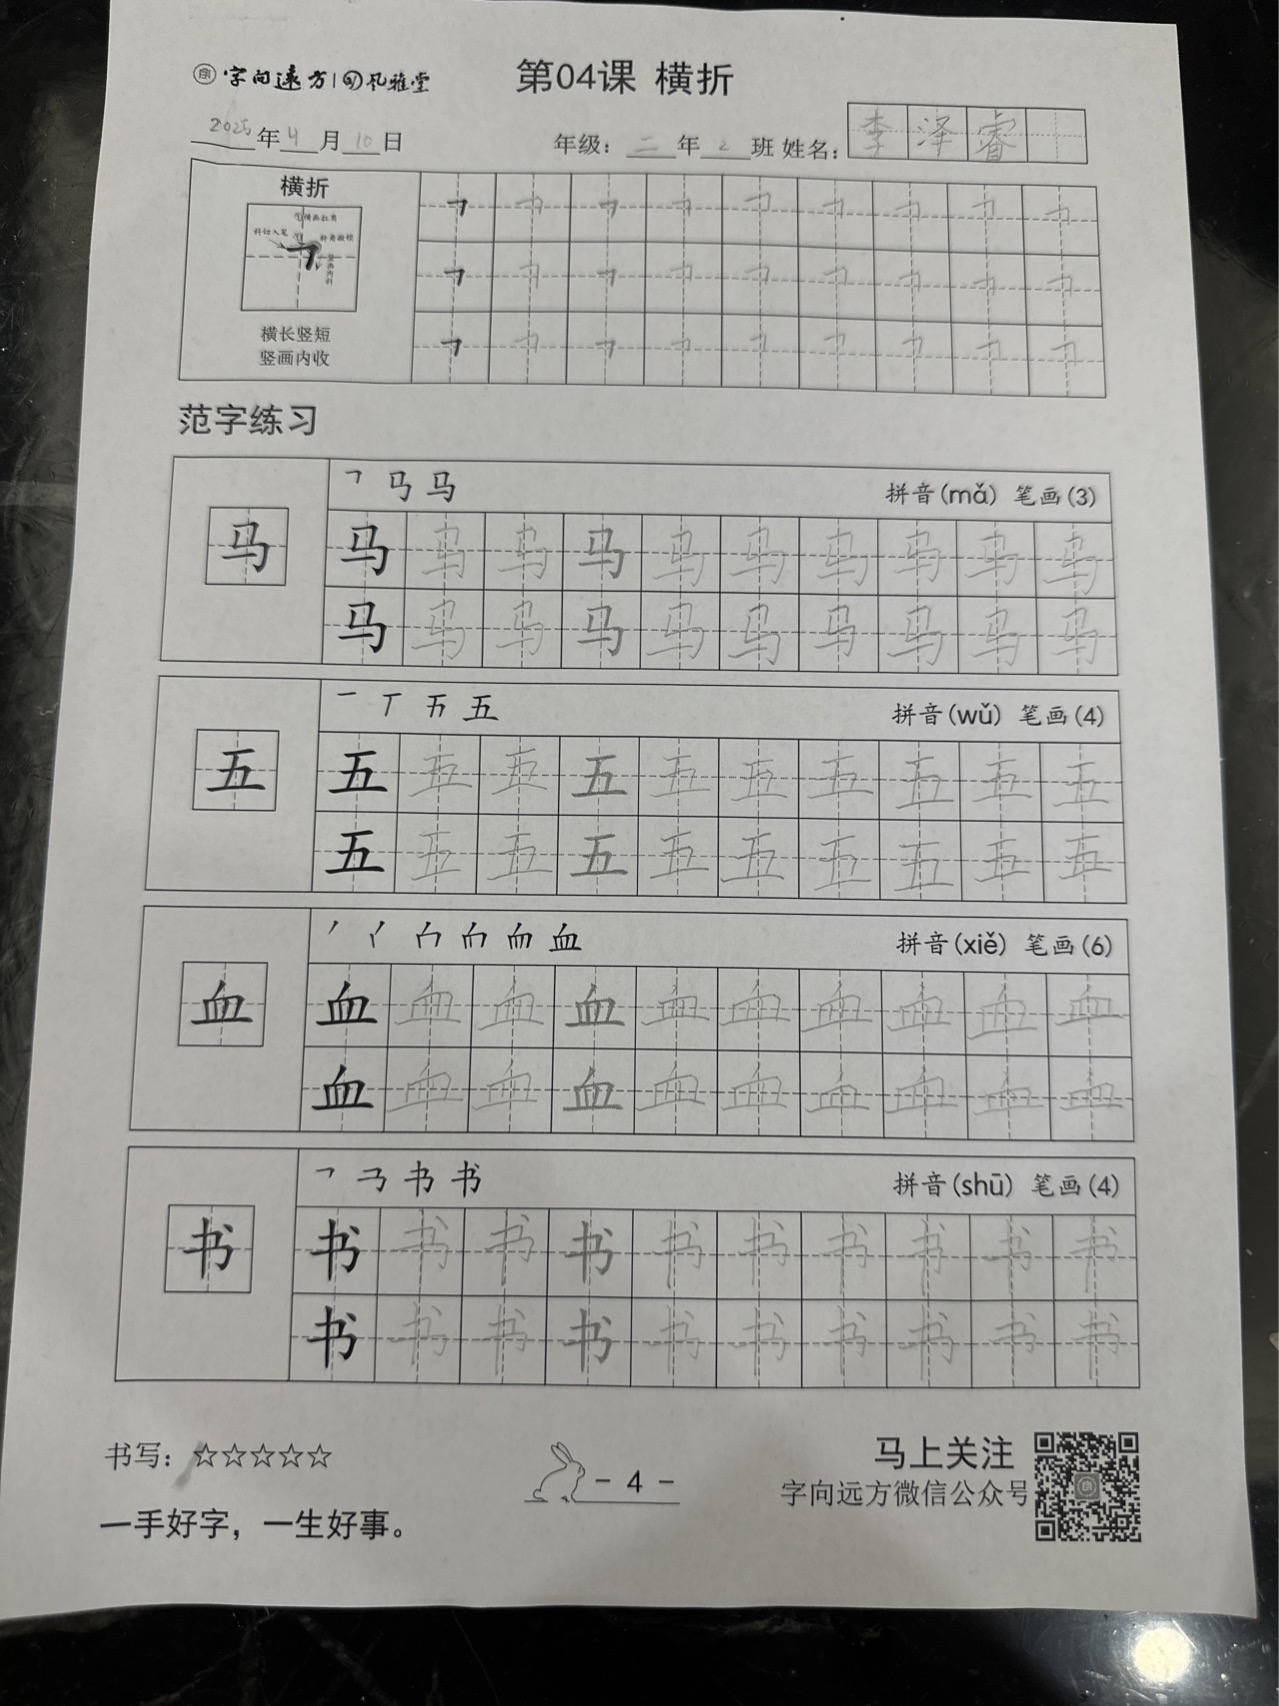 字向远方|风雅堂 第04课 横折
2025年4月10日 年级：二年2班 姓名：李泽睿
横折
①横画扛肩
斜切入笔
折角微顿
竖画内斜
横长竖短
竖画内收
范字练习
㇕ 马 马 拼音(mǎ) 笔画(3)
马 马 马 马 马 马 马 马 马 马 马
马 马 马 马 马 马 马 马 马 马
一 丅 五 五 拼音(wǔ) 笔画(4)
五 五 五 五 五 五 五 五 五 五 五
五 五 五 五 五 五 五 五 五 五
拼音(xiě) 笔画(6)
血 血 血 血 血 血 血 血 血 血 血
血 血 血 血 血 血 血 血 血 血
㇕ 书 书 拼音(shū) 笔画(4)
书 书 书 书 书 书 书 书 书 书 书
书 书 书 书 书 书 书 书 书 书
书写：☆☆☆☆☆
- 4 -
马上关注
字向远方微信公众号
一手好字，一生好事。